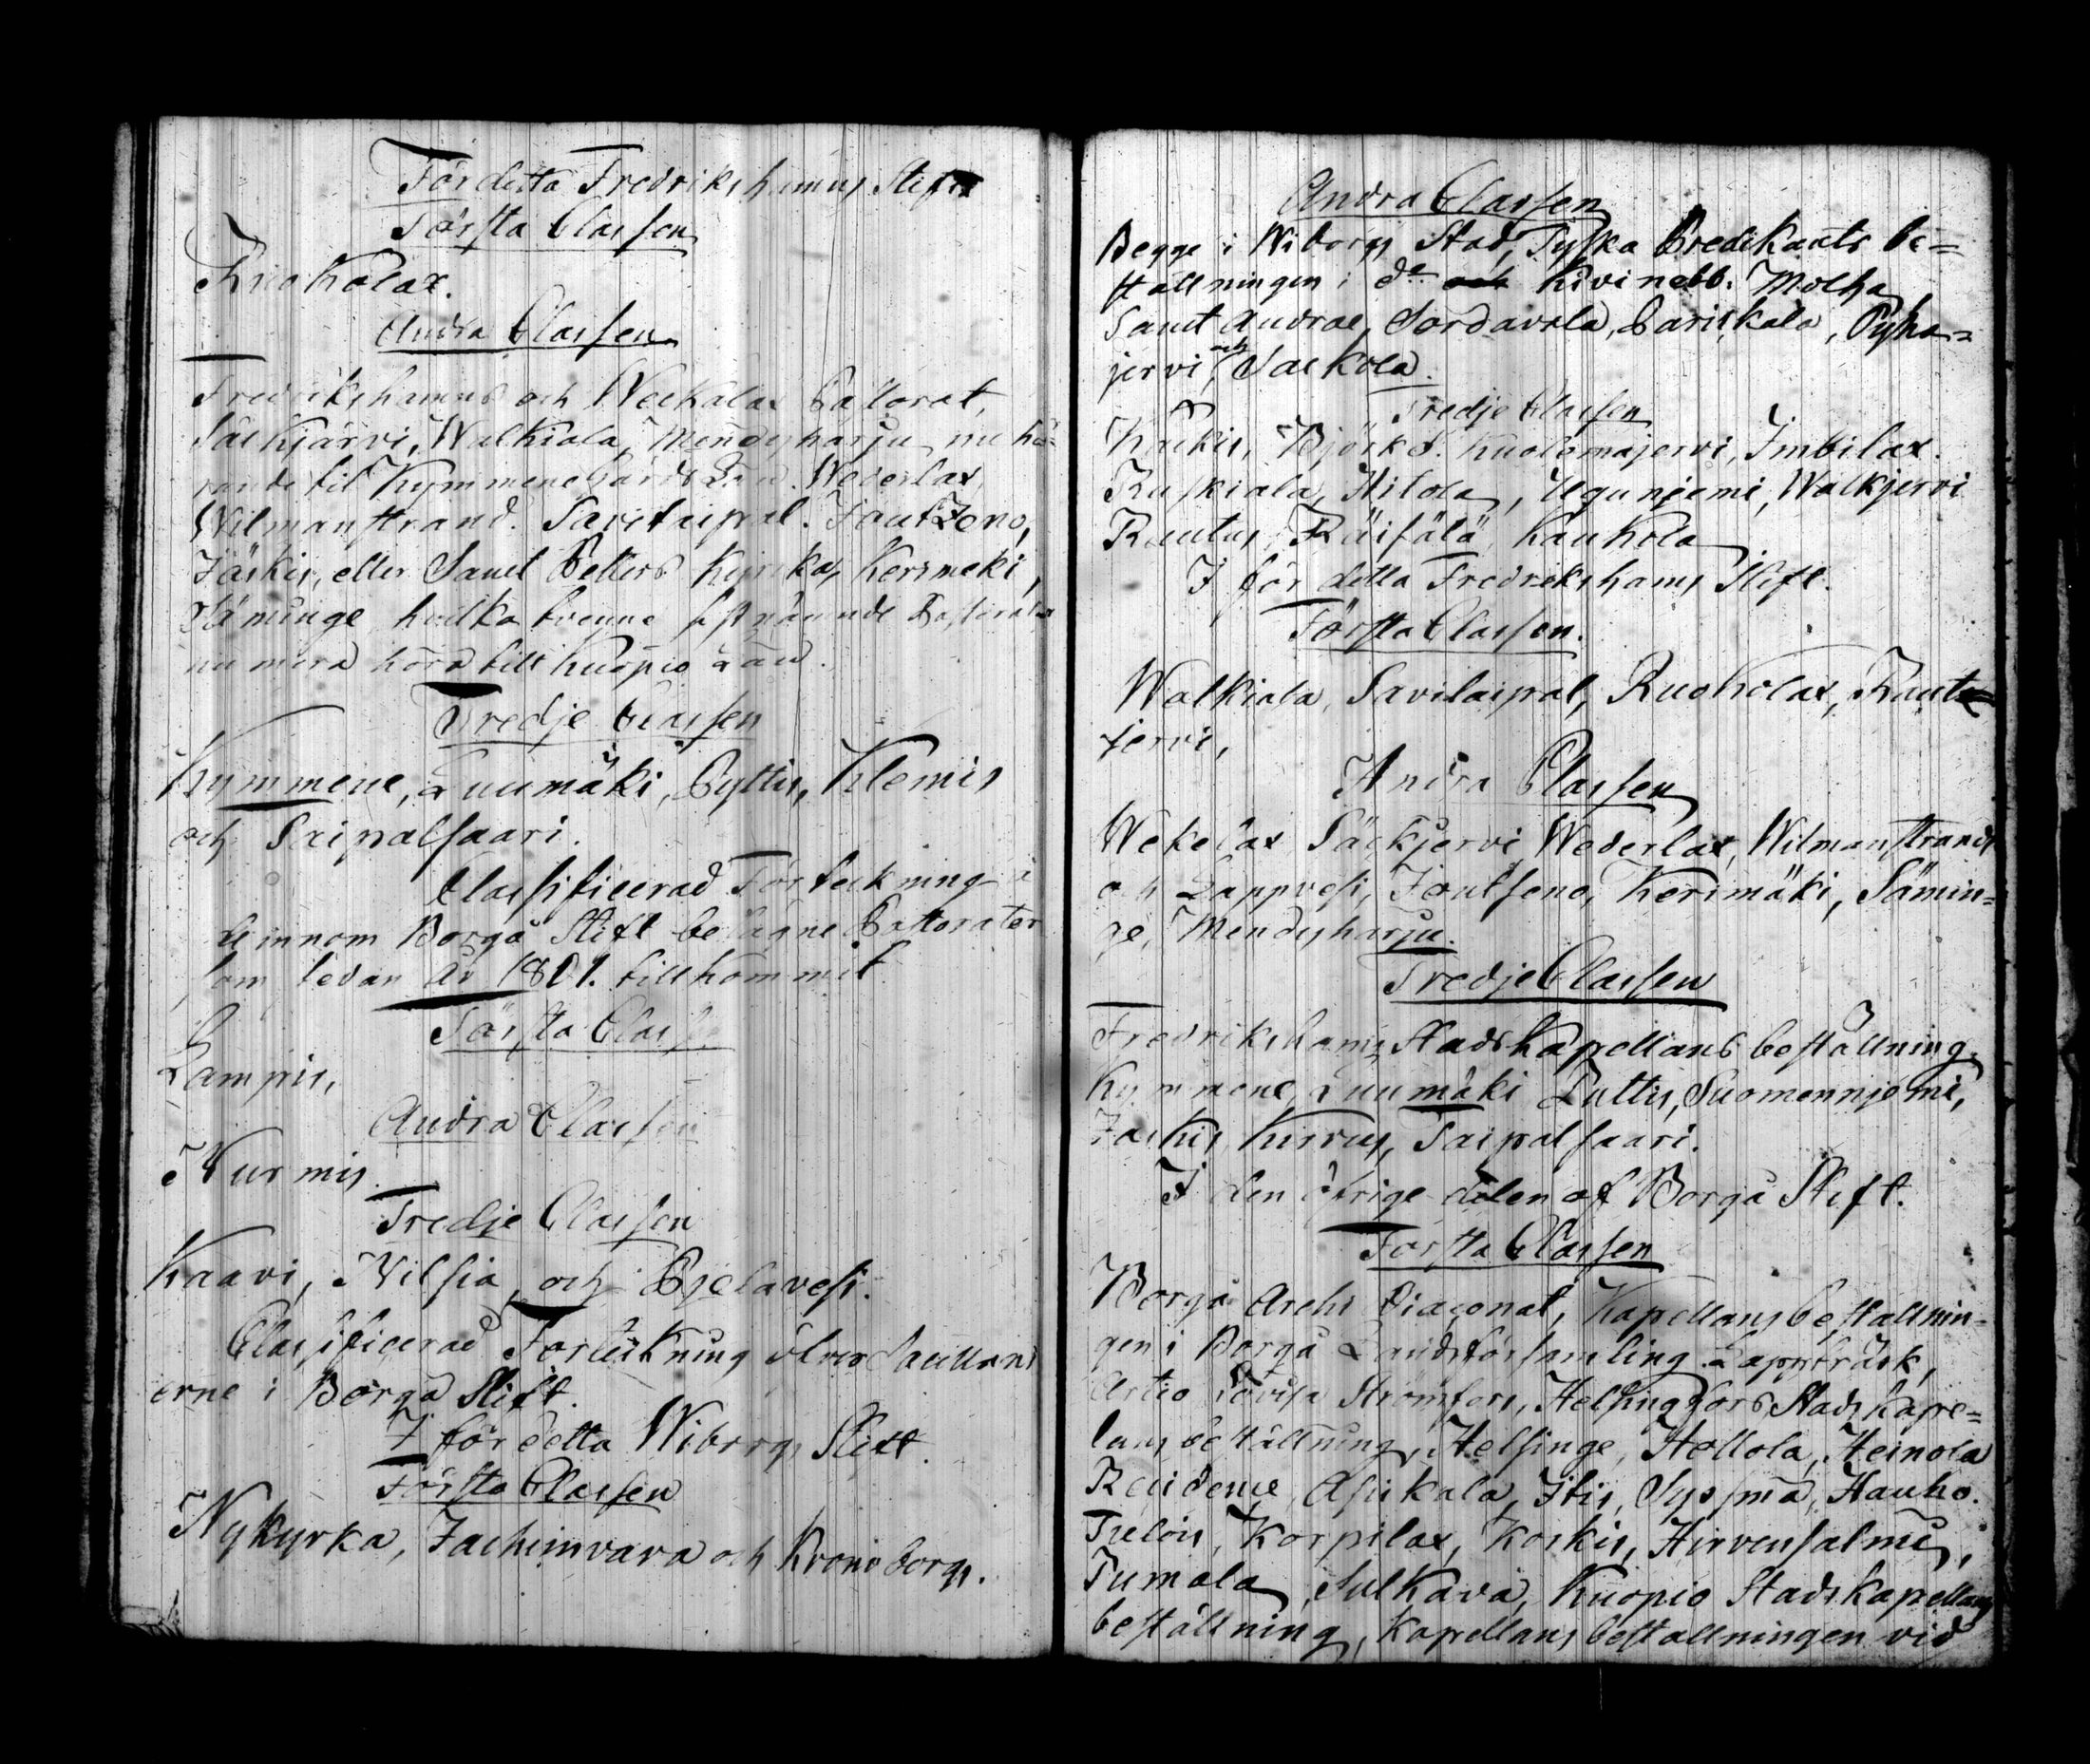 Fördetta Fredrikshamns Stift
Första Classen
Ruokolax.
Andra Classen
Fredrikshamns och Weckalax Pastorat,
Säckjärvi, Walkiala, Mendyharju nu hö-
rande til Kymmenegårds Län. Wederlax,
Wilmanstrand. Savitaipal. Joutzeno,
Jäskis, eller Sanct Petters Kyrka, Kerimeki,
Säminge hvilka tvenne sistnämnde Pastorater
numera höra till Kuopio Län.
Tredje Classen
Kymmene, Luumäki, Pyttis, Klemis
och Taipalsaari.
Classificerad Förteckning å
de innom Borgå Stift belägne Pastorater
som sedan år 1801. tillkommit
Första Class
Lampis,
Andra Classen
Nurmis.
Tredje Classen
Kaavi, Nilsiä, och Pjelavesi.
Classificerad Förteckning öfver Sacellani
erne i Borgå Stift.
I för detta Wiborgs Stift.
Första Classen
Nykyrka, Jachimvara och Kronoborgs.
Andra Classen
Begge i Wiborgs Stad, Tyska Predikants be-
stallningen i do Kivinebb. Molha
Sanct Andrae, Sordavala, Pariskala, Pyha-
jervi, och Sackola.
Tredje Classen
Kräkis, Björkö. Kuolemajervi, Imbilax.
Ruskiala, Hitola, Ugunjemi, Walkjervi
Rautus, Räisälä, Kaukola
I för detta Fredrikshams Stift.
Första Classen.
Walkiala, Savilaipal, Ruokolax, Rauta-
jervi,
Andra Classen
Wekelax Säckjervi Wederlax, Wilmanstrand
och Lappvesi, Joutseno, Kerimäki, Sämin-
ge, Mendyharju.
Tredje Classen
Fredrikshams Stadskapellans beställning
Kymmene, Luumäki Puttis, Suomennjemi,
Jaskis Kirvus, Taipalsaari.
I den öfrige delen af Borgå Stift.
Första Classen
Borgå Archi Diaconat, Kapellans beställnin-
gen i Borgå Landsförsamling Lappträsk,
Artio Lovisa Strömfors, Helsingfors Stadskape-
lans beställning, Helsinge, Hollola, Heinola
Residence, Asikala, Itis, Sysmä, Hauho.
Tulois, Korpilax, Koskis, Hirvensalmi,
Pumala, Sulkava, Kuopio Stadskapellans
beställning, Kapellans beställningen vid